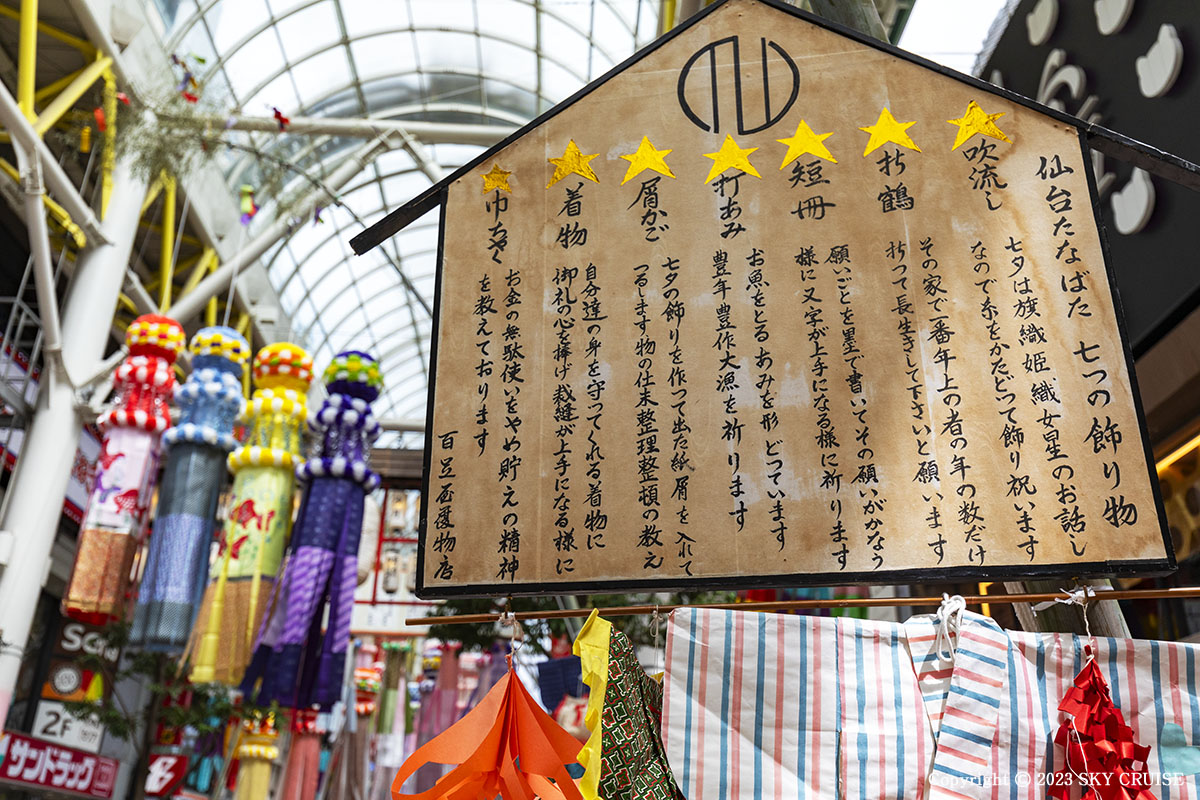 仙台たなばた 七つの飾り物
吹流し
七夕は旗織姫織女星のお話し
なので糸をかたどって飾り祝います
折鶴
その家で一番年上の者の年の数だけ
折つて長生きして下さいと願います
短冊
願いごとを墨で書いてその願いがかなう
様に又字が上手になる様に祈ります
投あみ
お魚をとるあみを形どっています
豊年豊作大漁を祈ります
屑かご
七夕の飾りを作って出た紙屑を入れて
つるします物の仕末整理整頓の教え
着物
自分達の身を守ってくれる着物に
御礼の心を捧げ裁縫が上手になる様に
巾ちゃく
お金の無駄使いをやめ貯えの精神
を教えております
百足屋履物店
2F
サンドラッグ
Copyright © 2023 SKY CRUISE